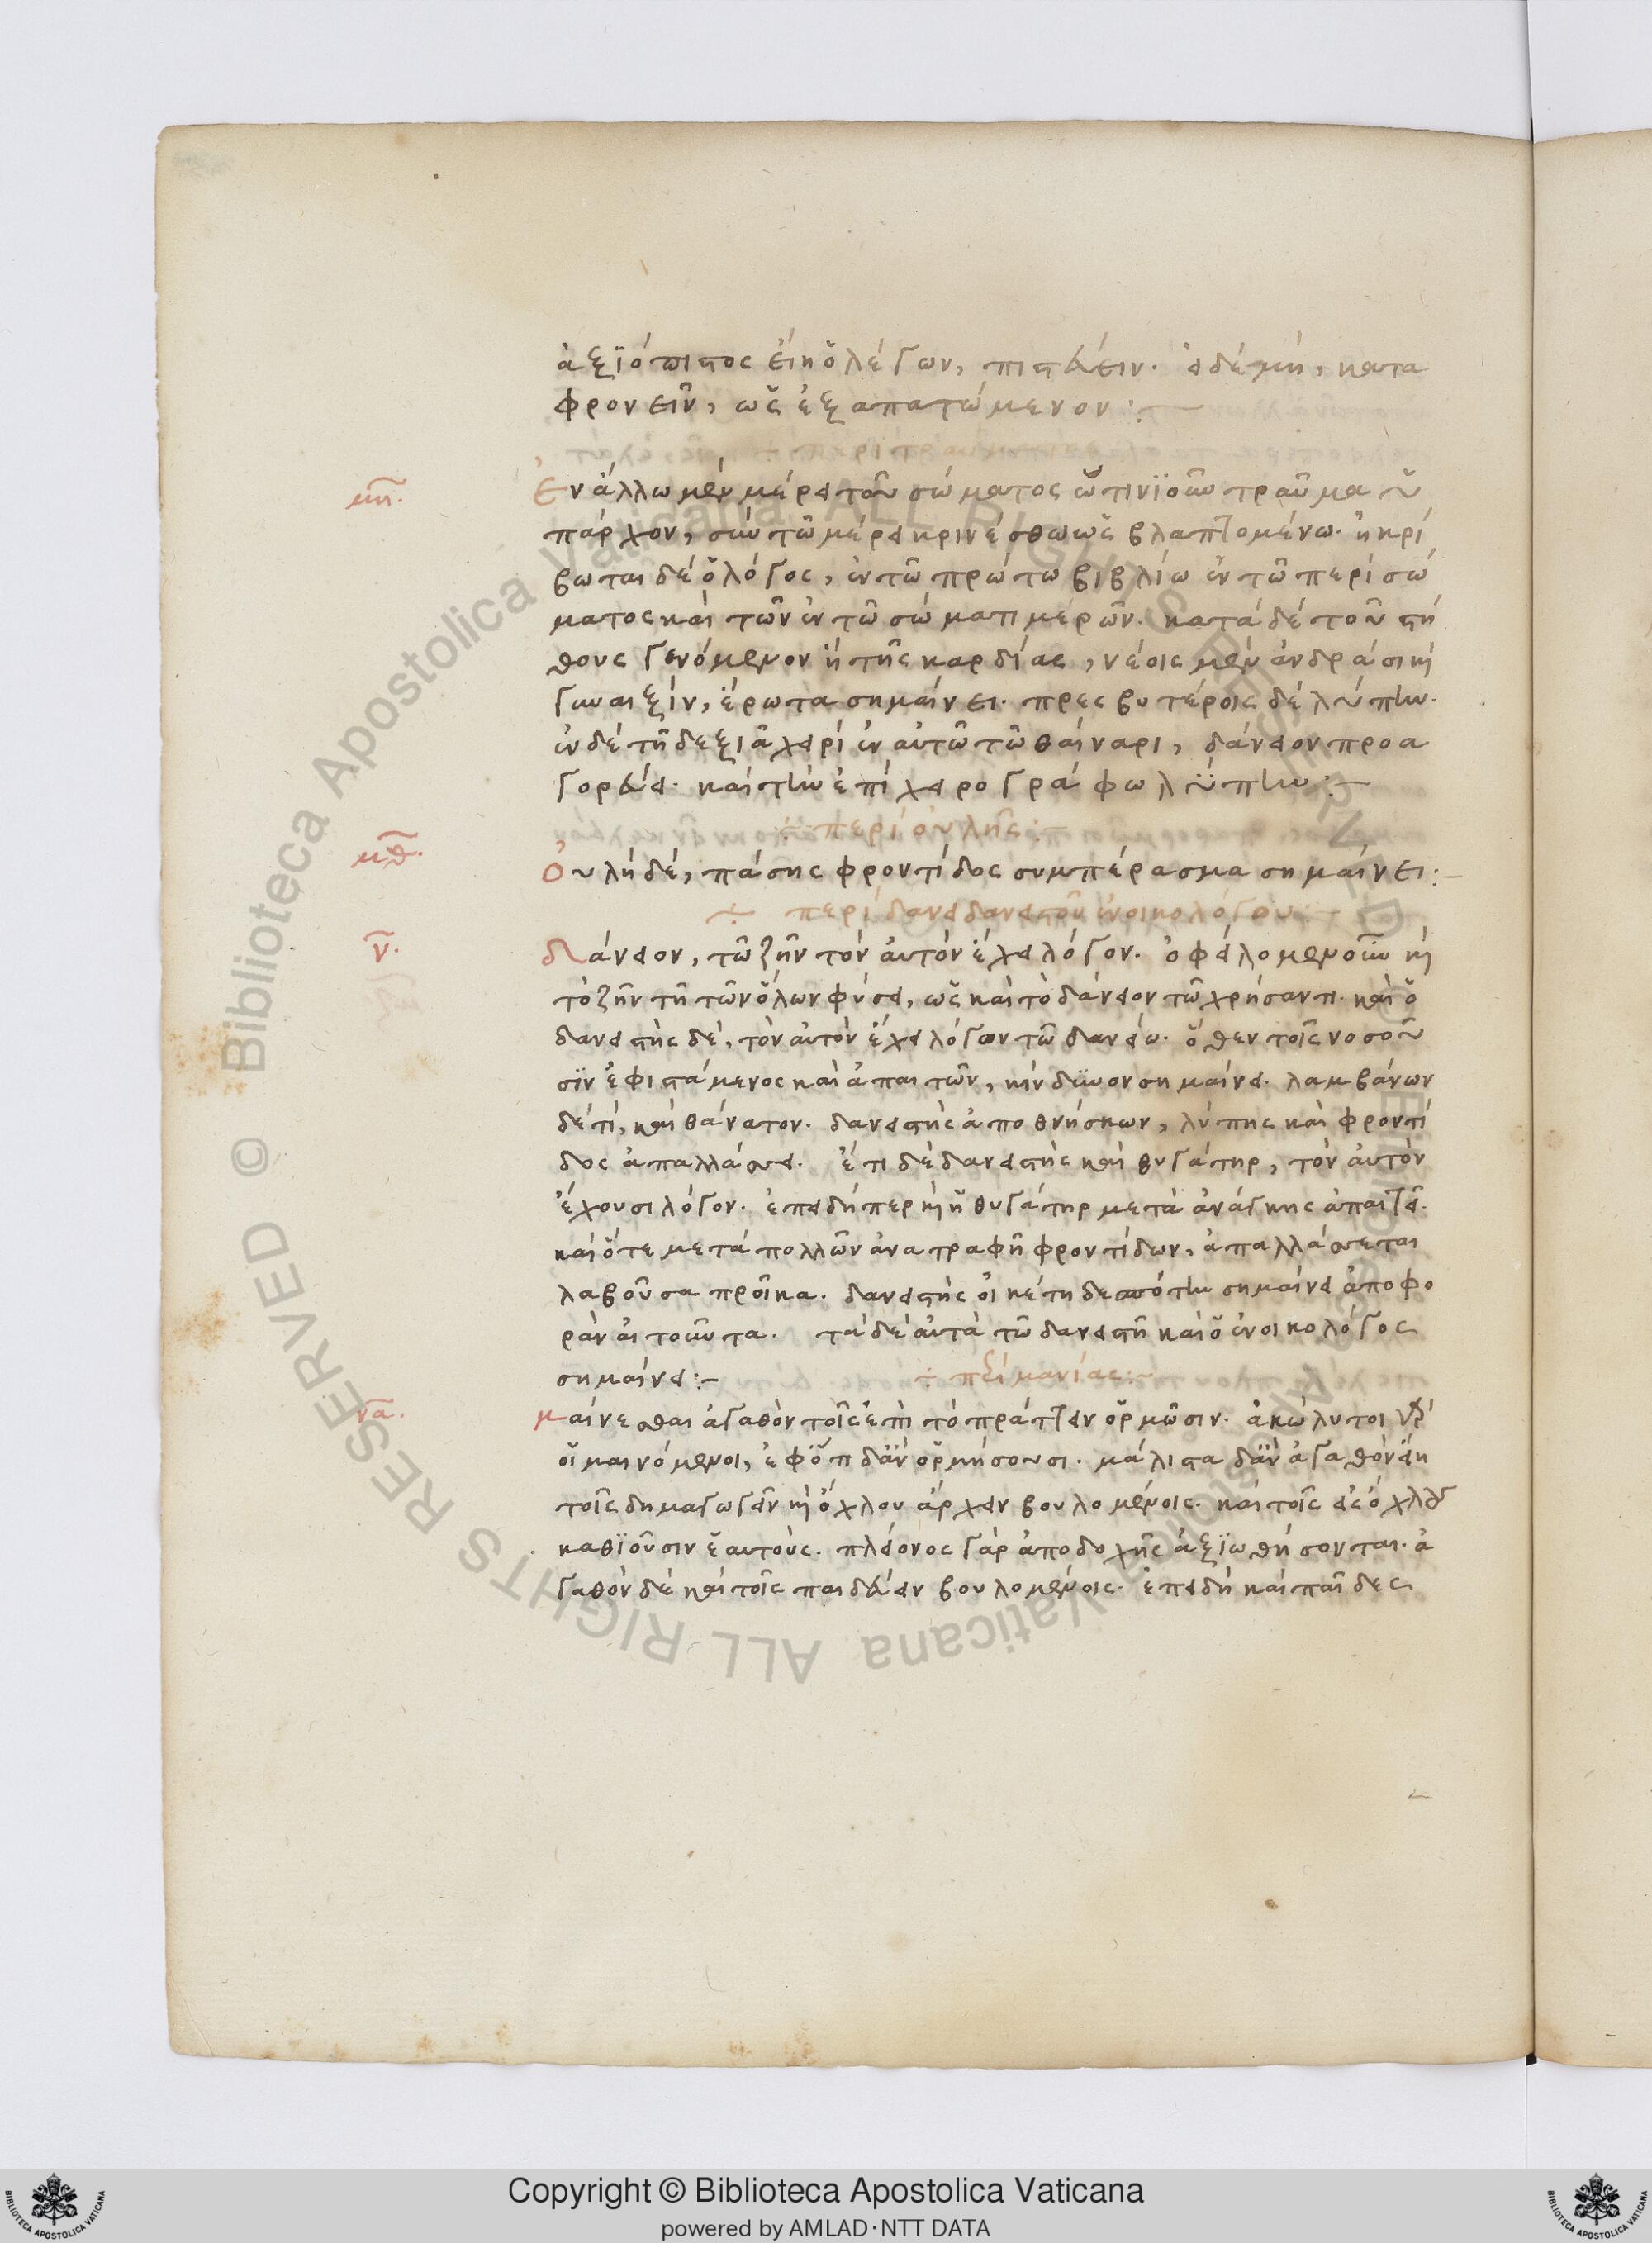 ἀξϊόπιστος εἴη ὁ λέγων, πιστεύειν. εἰ δὲ μὴ, κατα
φρονεῖν, ὡς ἐξαπατώμενον:—
μη. Ἐν ἄλλω μὲν μέρει τοῦ σώματος ὧτινϊοῦν τραῦμα ὑ
πάρχον, σὺν τῶ μέρει κρινέσθω ὡς βλαπτομένω. ἠκρί
βωται δὲ ὁ λόγος, ἐν τῶ πρώτω βιβλίω ἐν τῶ περὶ σώ
ματος καὶ τῶν ἐν τῶ σώματι μερῶν. κατὰ δὲ τοῦ στή
θους γενόμενον ἢ τῆς καρδίας, νέοις μὲν ἀνδράσι καὶ
γυναιξὶν, ἔρωτα σημαίνει. πρεσβυτέροις δὲ λύπην.
ἐν δὲ τῆ δεξιᾶ χειρὶ ἐν αὐτῶ τῶ θαίναρι, δάνειον προα
γορεύει. καὶ τὴν ἐπὶ χειρογράφω λύπην:—
÷ περὶ οὐλῆς:—
μθ. Οὐλὴ δὲ, πάσης φροντίδος συμπέρασμα σημαίνει:—
÷ περὶ δανείου δανειστοῦ ἐνοικολόγου:—
ν. Δάνειον, τῶ ζῆν τὸν αὐτὸν ἔχει λόγον. ὀφείλομεν οὖν καὶ
τὸ ζῆν τῆ τῶν ὅλων φύσει, ὡς καὶ τὸ δάνειον τῶ χρήσαντι. καὶ ὁ
δανειστὴς δὲ, τὸν αὐτὸν ἔχει λόγον τῶ δανείω. ὅθεν τοῖς νοσοῦ
σϊν ἐφιστάμενος καὶ ἀπαιτῶν, κίνδυνον σημαίνει. λαμβάνων
δέ τι, καὶ θάνατον. δανειστὴς ἀποθνήσκων, λύπης καὶ φροντί
δος ἀπαλλάσσει. ἔτι δὲ δανειστὴς καὶ θυγάτηρ, τὸν αὐτὸν
ἔχουσι λόγον. ἐπειδήπερ καὶ ἡ θυγάτηρ μετὰ ἀνάγκης ἀπαιτεῖ.
καὶ ὅτε μετὰ πολλῶν ἀνατραφῆ φροντίδων, ἀπαλλάσσεται
λαβοῦσα προῖκα. δανειστὴς οἰκέτη δεσπότην σημαίνει ἀποφο
ρὰν αἰτοῦντα. τὰ δὲ αὐτὰ τῶ δανειστῆ καὶ ὁ ἐνοικολόγος
σημαίνει:— ÷ περὶ μανίας:—
να. Μαίνεσθαι ἀγαθὸν τοῖς ἐπὶ τὸ πράττειν ὁρμῶσιν. ἀκώλυτοι γὰρ
οἱ μαινόμενοι, ἐφ' ὅτι δἂν ὁρμήσουσι. μάλιστα δἂν ἀγαθὸν εἴη
τοῖς δημαγωγεῖν καὶ ὄχλου ἄρχειν βουλομένοις. καὶ τοῖς εἰς ὄχλον
καθϊοῦσιν ἑαυτούς. πλείονος γὰρ ἀποδοχῆς ἀξϊωθήσονται. ἀ
γαθὸν δὲ καὶ τοῖς παιδεύειν βουλομένοις. ἐπειδὴ καὶ παῖδες
Biblioteca Apostolica Vaticana ALL RIGHTS RESERVED ©
Copyright © Biblioteca Apostolica Vaticana
powered by AMLAD·NTT DATA
BIBLIOTECA APOSTOLICA VATICANA
BIBLIOTECA APOSTOLICA VATICANA